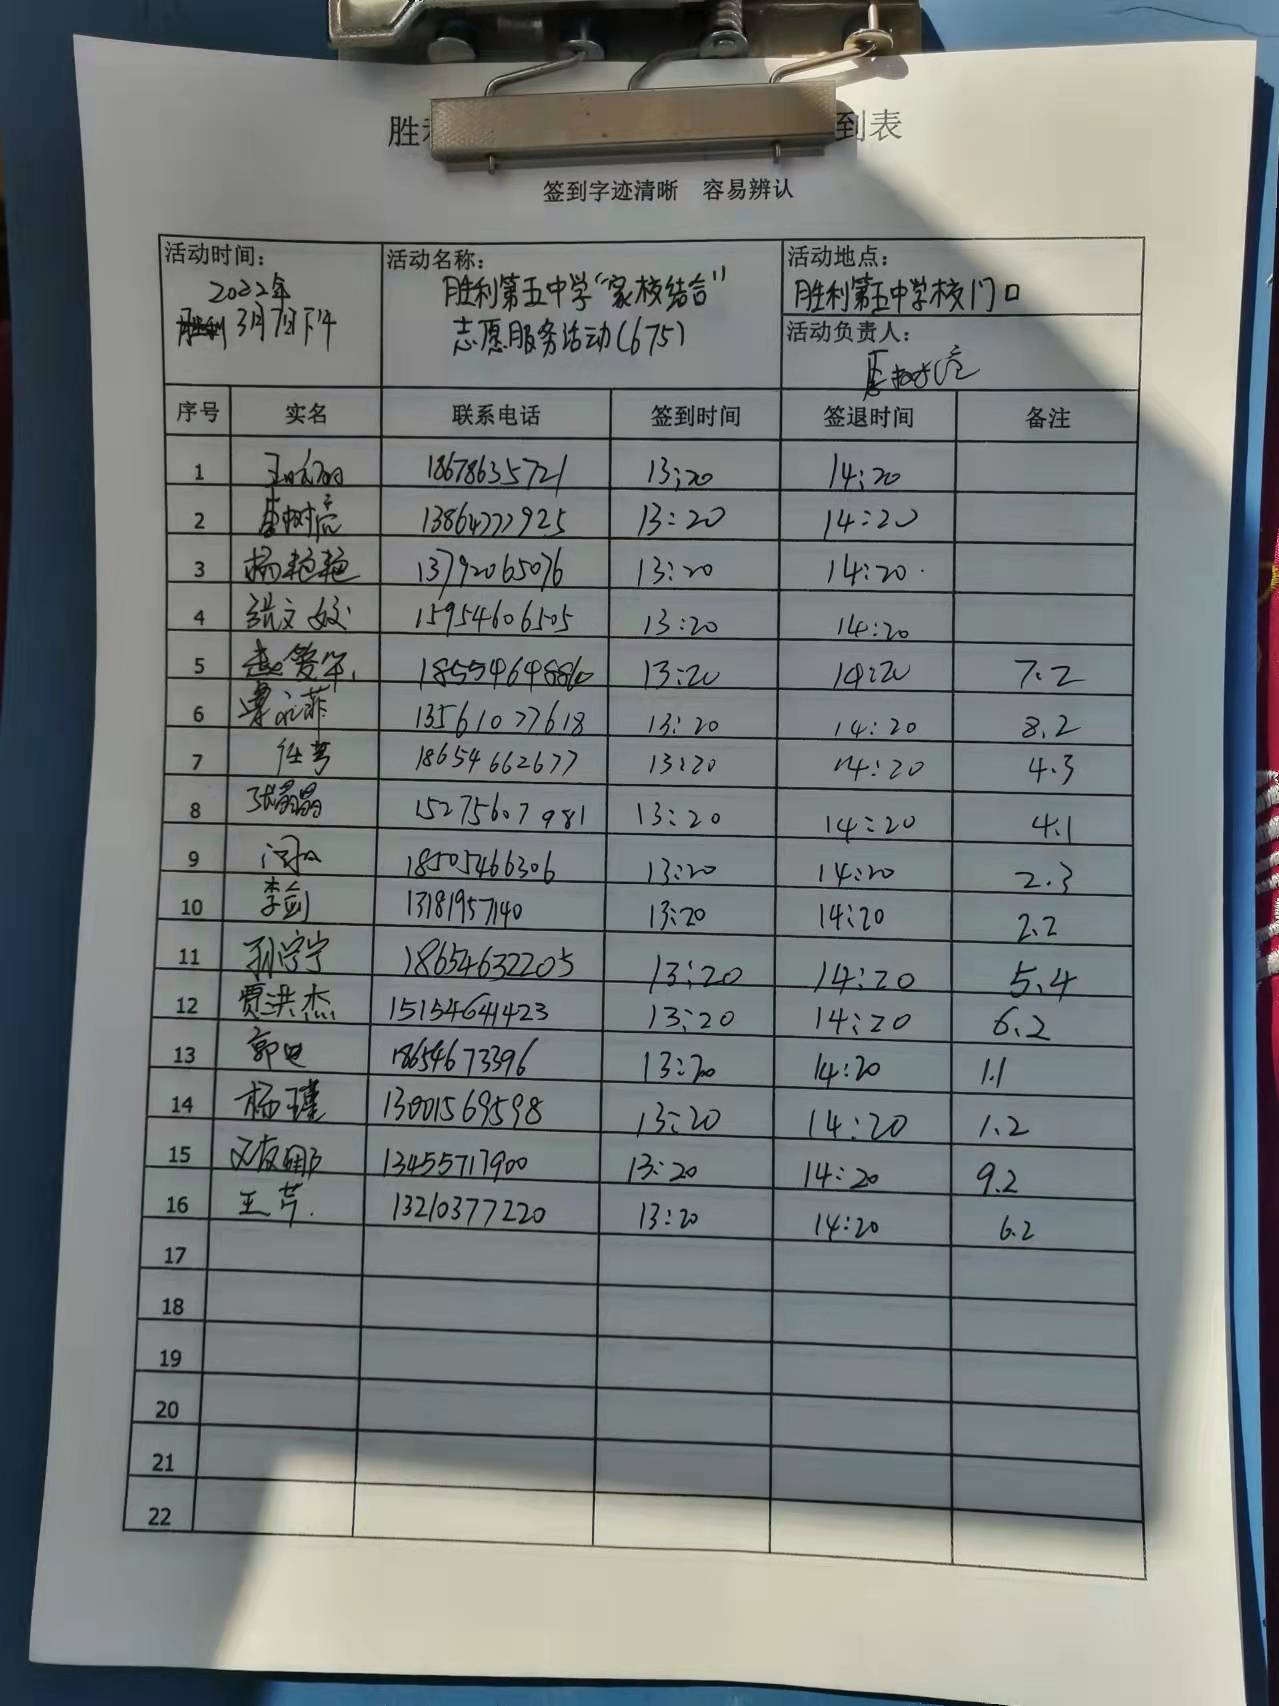 胜 到表
签到字迹清晰 容易辨认
活动时间: 活动名称: 活动地点:
2022年 胜利第五中学“家校结合” 胜利第五中学校门口
3月7日下午 志愿服务活动(675) 活动负责人:
序号 实名 联系电话 签到时间 签退时间 备注
1 18678635721 13:20 14:20
2 树亮 13864777925 13:20 14:20
3 杨艳艳 13792065076 13:20 14:20
4 张文姣 15954606505 13:20 14:20
5 赵爱华 13:20 14:20 7.2
6 13561077618 13:20 14:20 8.2
7 任芳 18654662677 13:20 14:20 4.3
8 张晶晶 15275607981 13:20 14:20 4.1
9 18505466306 13:20 14:20 2.3
10 李剑 13181957140 13:20 14:20 2.2
11 孙宁宁 18654632205 13:20 14:20 5.4
12 贾洪杰 15154641423 13:20 14:20 6.2
13 郭迎 18654673396 13:20 14:20 1.1
14 杨瑾 13001569598 13:20 14:20 1.2
15 13455717900 13:20 14:20 9.2
16 王芹 13210377220 13:20 14:20 6.2
17
18
19
20
21
22